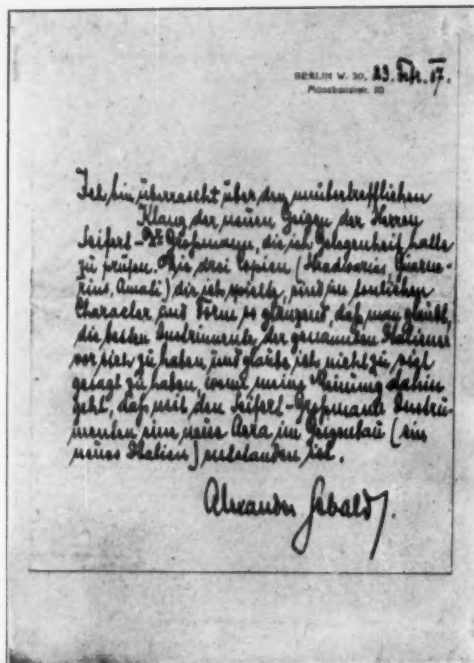 BERLIN W. 30, 23. Febr. 17.
Münchenerstr. 10
Ich bin überrascht über den unübertrefflichen
Klang der neuen Geigen der Herren
Seifert-Dr. Großmann, die ich Gelegenheit hatte
zu prüfen. Die drei Copien (Stradivarius, Guarne-
rius, Amati) die ich spielte, sind im tonlichen
Character und Form so glänzend, daß man glaubt,
die besten Instrumente der genannten Italiener
vor sich zu haben, und glaube ich nicht zu viel
gesagt zu haben, wenn meine Meinung dahin
geht, daß mit den Seifert-Großmanns Instru-
menten eine neue Aera im Geigenbau (ein
neues Italien) entstanden ist.
Alexander Sebald.